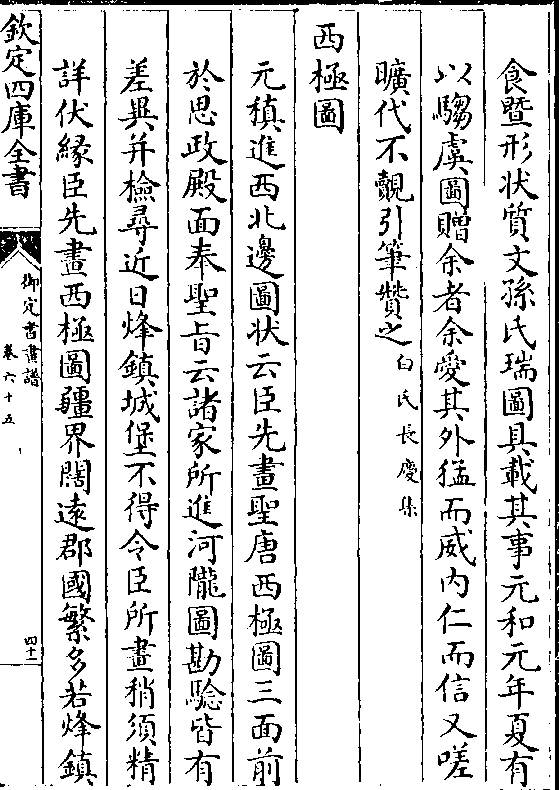 食暨形状質文孫氏瑞圖具載其事元和元年夏有
以騶虞圖贈余者余愛其外猛而威内仁而信又嗟
曠代不覿引筆贊之白氏長慶集
西極圖
元稹進西北邊圖状云臣先畫聖唐西極圖三面前
於思政殿面奉聖旨云諸家所進河隴圖勘驗皆有
差異并檢尋近日烽鎮城堡不得令臣所畫稍須精
詳伏緣臣先畫西極圖疆界闊遠郡國繁多若烽鎮
欽定四庫全書
御定書畫譜
卷六十五
四十二